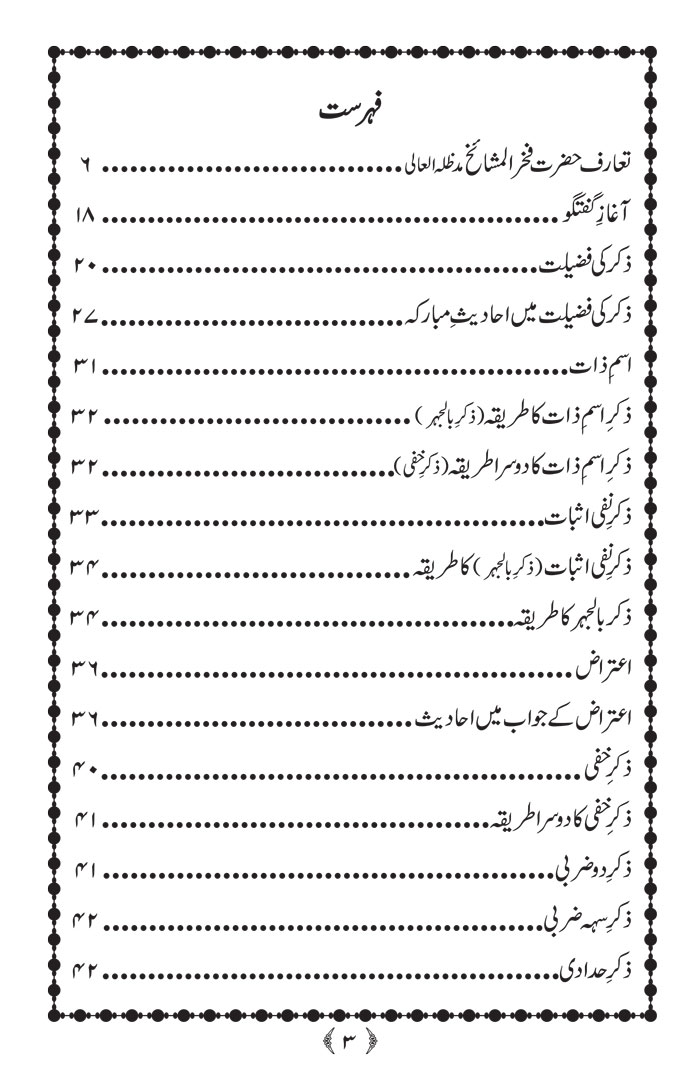 فہرست
تعارف حضرت فخر المشائخ مدظلہ العالی ................................ ۶
آغازِ گفتگو ................................................ ۱۸
ذکر کی فضیلت............................................... ۲۰
ذکر کی فضیلت میں احادیثِ مبارکہ................................. ۲۷
اسمِ ذات.................................................. ۳۱
ذکرِ اسمِ ذات کا طریقہ (ذکرِ بالجہر) ................................. ۳۲
ذکرِ اسمِ ذات کا دوسرا طریقہ (ذکرِ خفی)............................... ۳۲
ذکرِ نفی اثبات............................................... ۳۳
ذکرِ نفی اثبات (ذکرِ بالجہر) کا طریقہ ................................. ۳۴
ذکر بالجہر کا طریقہ............................................ ۳۴
اعتراض .................................................. ۳۶
اعتراض کے جواب میں احادیث ................................. ۳۶
ذکرِ خفی ................................................... ۴۰
ذکرِ خفی کا دوسرا طریقہ.......................................... ۴۱
ذکرِ دو ضربی................................................ ۴۱
ذکرِ سہہ ضربی............................................... ۴۲
ذکرِ حدادی................................................. ۴۲
﴿ ۳ ﴾